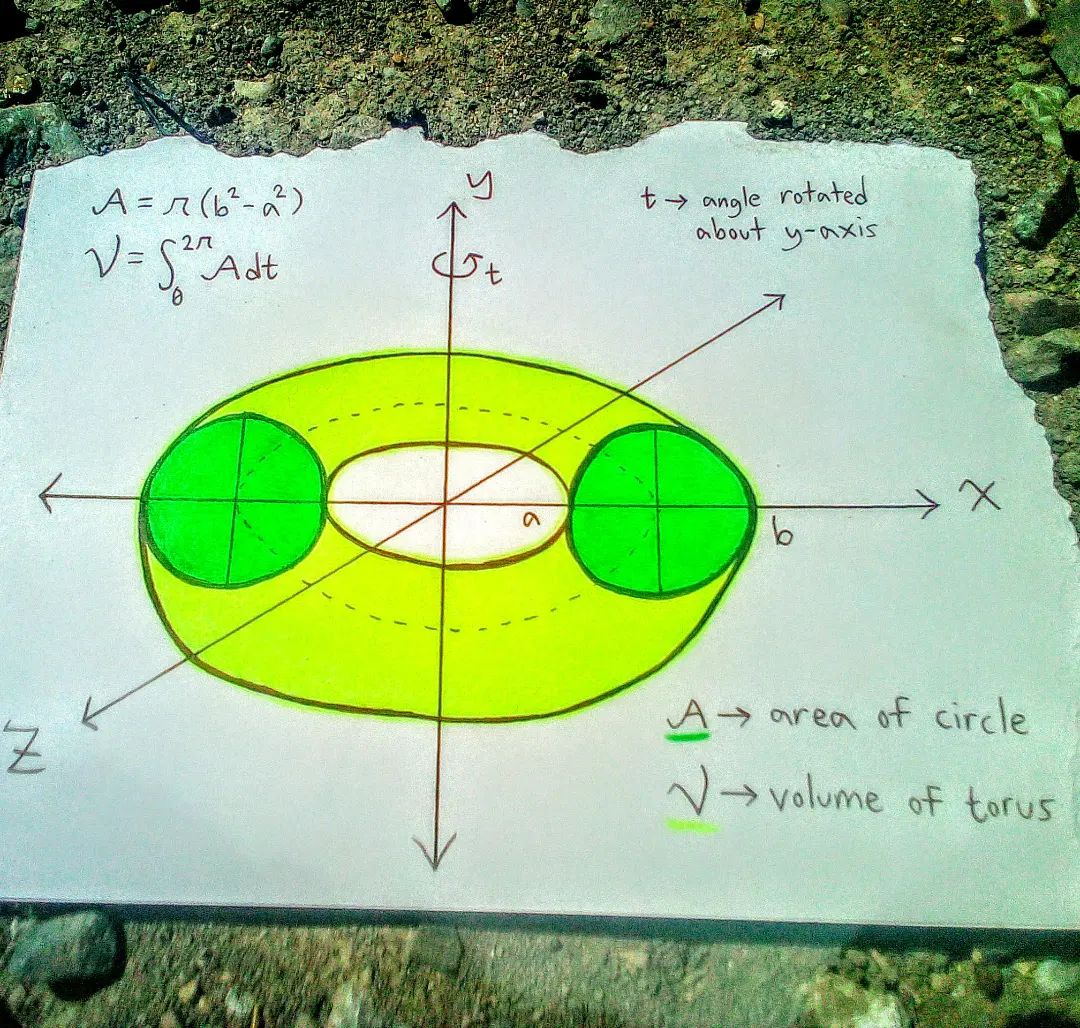 A = π(b² - a²)
V = ∫₀²π A dt
y
t
t → angle rotated
about y-axis
x
a
b
z
A → area of circle
V → volume of torus